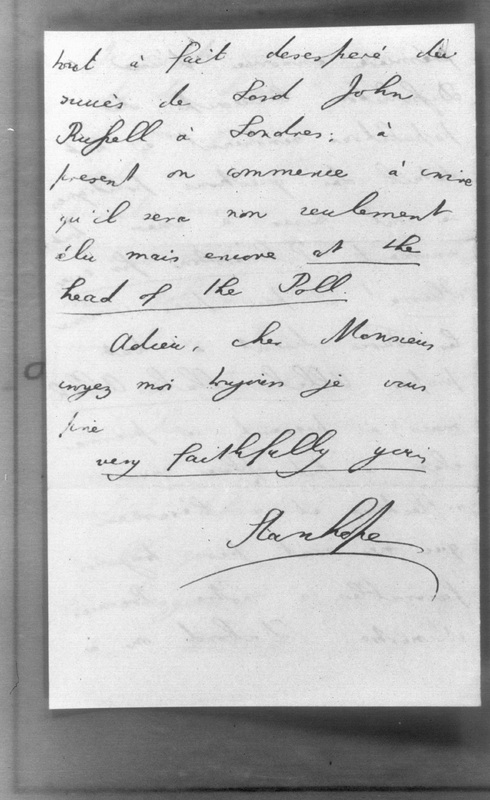 tout à fait desesperé du
succès de Lord John
Russell à Londres; à
present on commence à croire
qu'il sera non seulement
élu mais encore at the
head of the Poll.
Adieu, cher Monsieur
croyez moi toujours je vous
prie
very faithfully yours
Stanhope